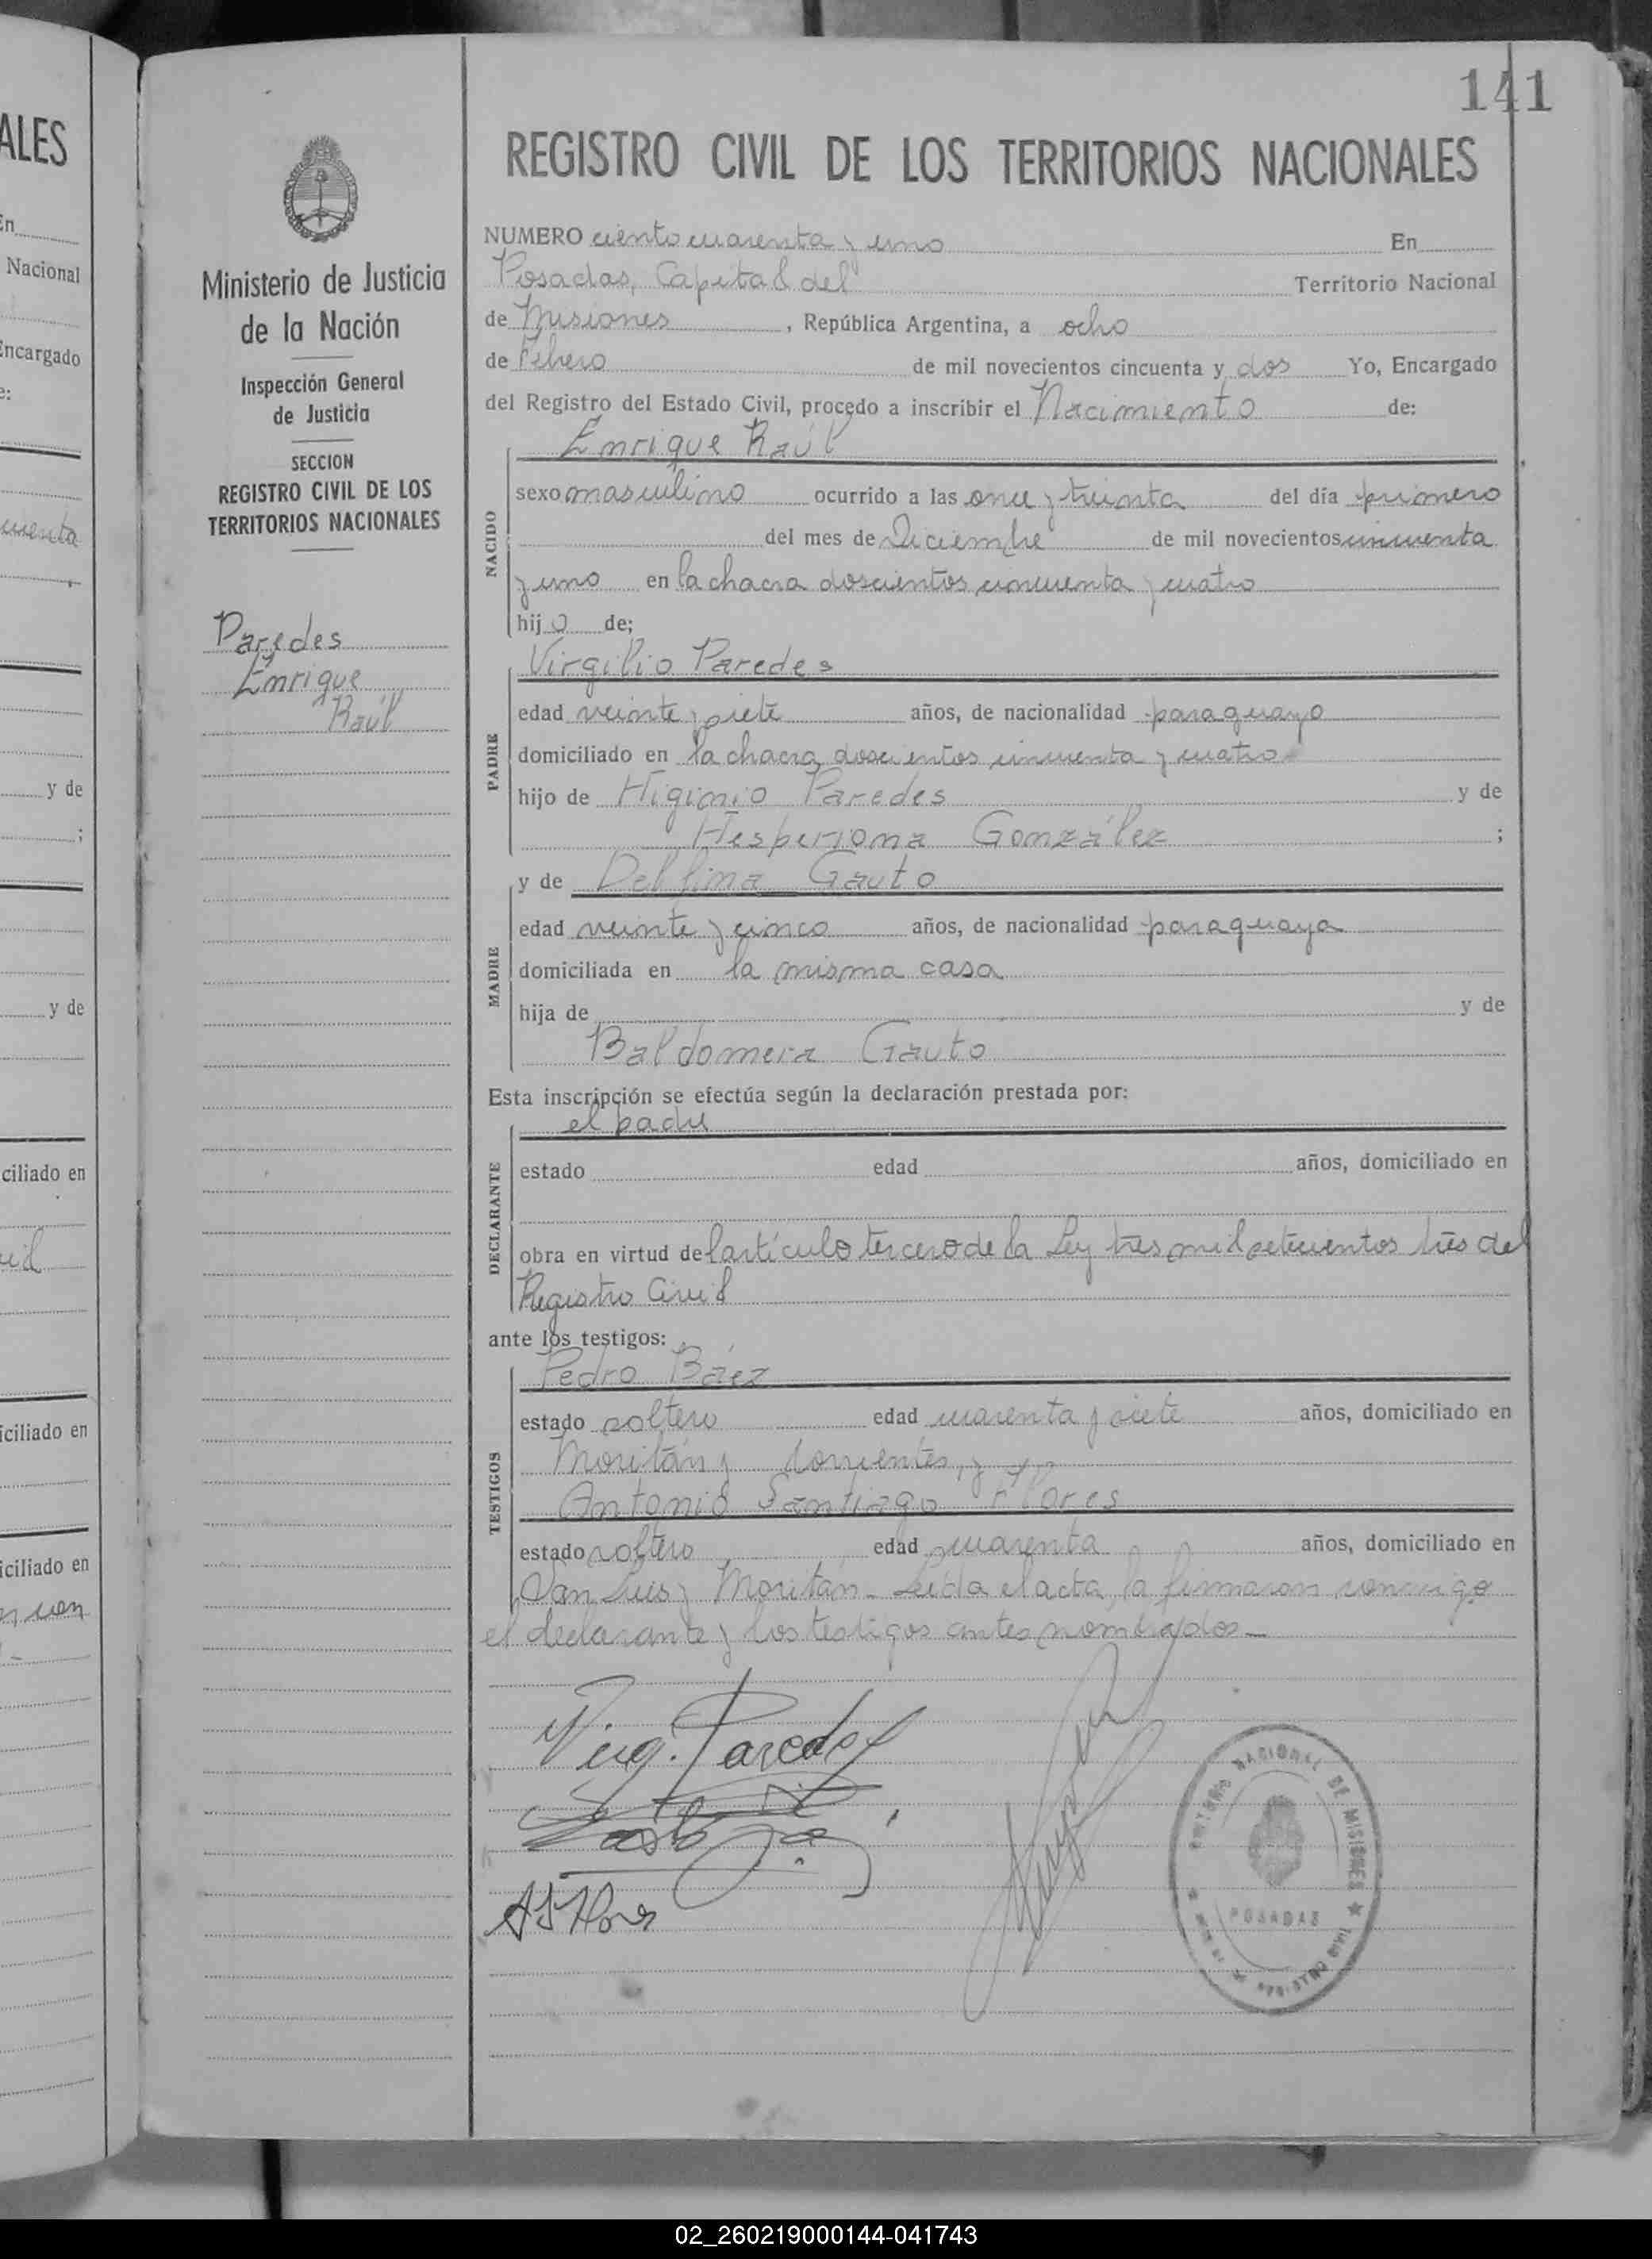 141
ALES
REGISTRO CIVIL DE LOS TERRITORIOS NACIONALES
Ministerio de Justicia
de la Nación
Inspección General
de Justicia
SECCION
REGISTRO CIVIL DE LOS
TERRITORIOS NACIONALES
Paredes
Enrique
Raúl
NUMERO ciento cuarenta y uno En
Posadas, Capital del Territorio Nacional
de Misiones, República Argentina, a ocho
de Febero de mil novecientos cincuenta y dos Yo, Encargado
del Registro del Estado Civil, procedo a inscribir el Nacimiento de:
Enrique Raúl
NACIDO
sexo masculino ocurrido a las once y treinta del día primero
del mes de Diciembre de mil novecientos cincuenta
y uno en la chacra doscientos cincuenta y cuatro
hijo de;
Virgilio Paredes
PADRE
edad veinte y siete años, de nacionalidad paraguayo
domiciliado en la chacra doscientos cincuenta y cuatro
hijo de Higinio Paredes y de
Hesperiona González ;
y de Delfina Gauto
MADRE
edad veinte y cinco años, de nacionalidad paraguaya
domiciliada en la misma casa
hija de y de
Baldomera Gauto
Esta inscripción se efectúa según la declaración prestada por:
el padre
DECLARANTE
estado edad años, domiciliado en
obra en virtud del artículo tercero de la Ley tres mil setecientos tres del
Registro Civil
ante los testigos:
Pedro Báez
TESTIGOS
estado soltero edad cuarenta y siete años, domiciliado en
Moritán y Corrientes, y
Antonio Santiago Flores
estado soltero edad cuarenta años, domiciliado en
San Luis y Moritán - Leída el acta, la firmaron conmigo
el declarante y los testigos antes nombrados -
Virg. Paredes
A S Flores
NACIONAL DE MISIONES
POSADAS
Nacional
Encargado
y de
;
y de
ciliado en
iciliado en
iciliado en
02_260219000144-041743